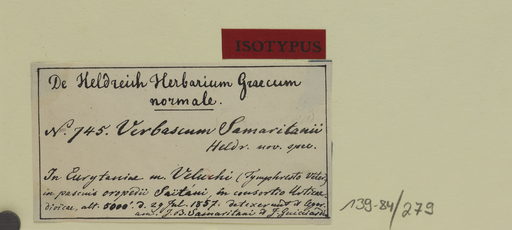 ISOTYPUS
De Heldreich Herbarium Graecum
normale.
No. 745. Verbascum Samaritanii
Heldr. nov. spec.
In Eurytaniae m. Veluchi (Tymphresto Veter.)
in pascuis oropedii Saitáni, in consortio Urticae
dioicae, alt. 5000'. d. 29 Jul. 1857. detexerunt d. 
am. J. B. Samaritani & J. Guicciardi
139-84/279